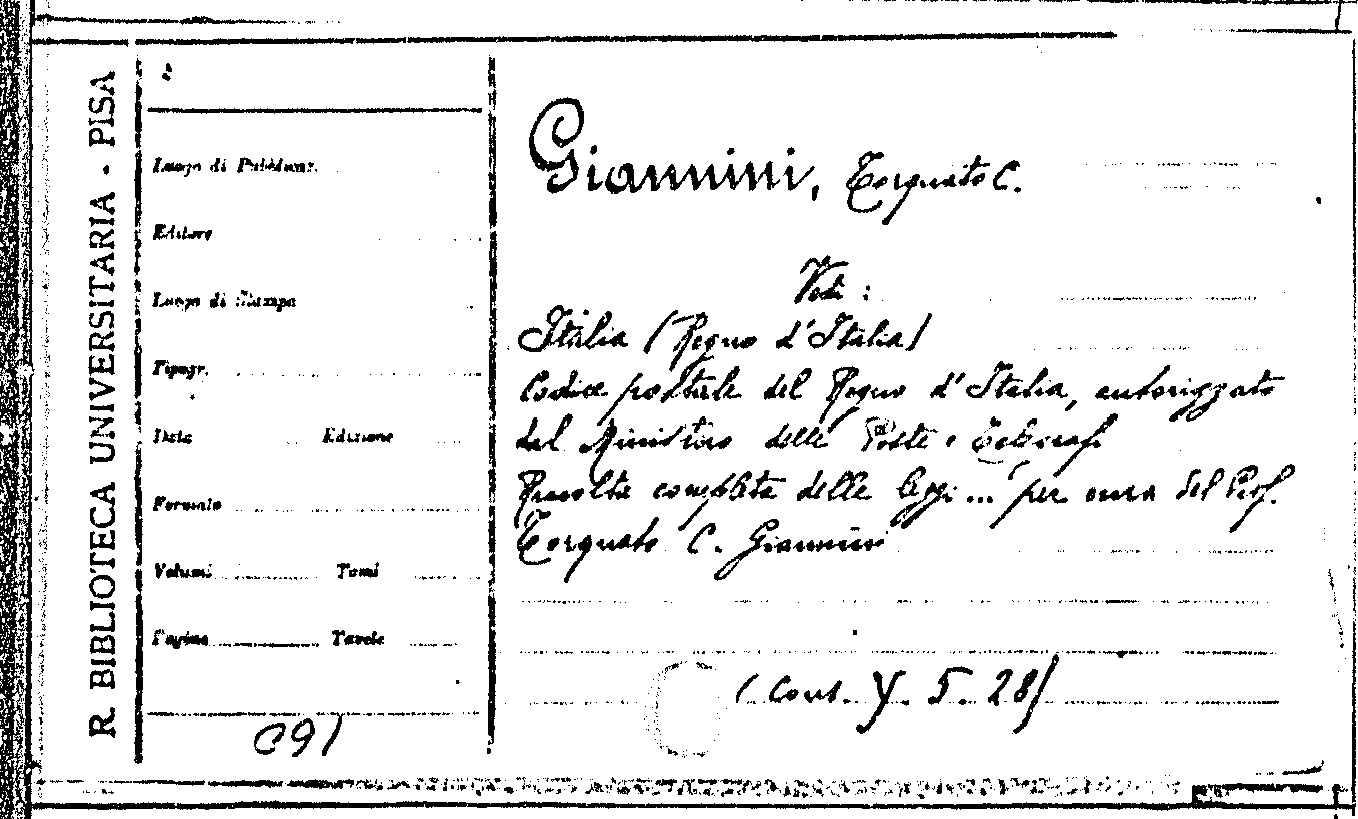 R. BIBLIOTECA UNIVERSITARIA - PISA
Luogo di Pubblicaz.
Editore
Luogo di Stampa
Tipogr.
Data Edizione
Formato
Volumi Tomi
Pagine Tavole
Giannini, Torquato C.
Vedi :
Italia (Regno d'Italia)
Codice postale del Regno d'Italia, autorizzato
dal Ministero delle Poste e Telegrafi
Raccolta completa delle leggi ... per cura del Prof.
Torquato C. Giannini
(Cons. Y. 5. 28)